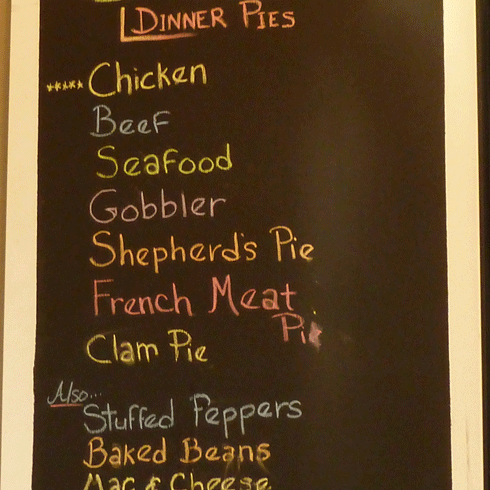 DINNER PIES
***** Chicken
Beef
Seafood
Gobbler
Shepherd's Pie
French Meat
Pie
Clam Pie
Also...
Stuffed Peppers
Baked Beans
Mac & Cheese